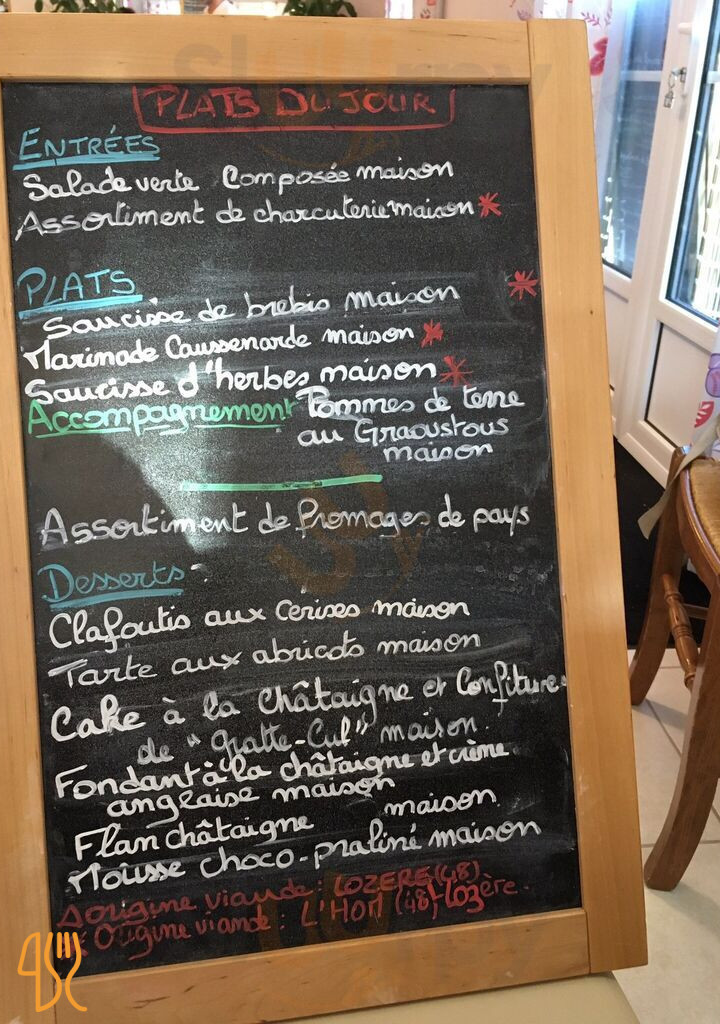 PLATS DU JOUR
ENTRÉES
Salade verte Composée maison
Assortiment de charcuterie maison *
PLATS
Saucisse de brebis maison *
Marinade Caussenarde maison *
Saucisse d'herbes maison *
Accompagnement Pommes de terre
au Graoustous
maison
Assortiment de fromages de pays
Desserts :
Clafoutis aux cerises maison
Tarte aux abricots maison
Cake à la châtaigne et Confitures
de "gratte-Cul" maison
Fondant à la châtaigne et crème
anglaise maison
Flan châtaigne maison
Moûsse choco-praliné maison
origine viande : LOZERE (48)
* Origine viande : L'HOM (48) Lozère.